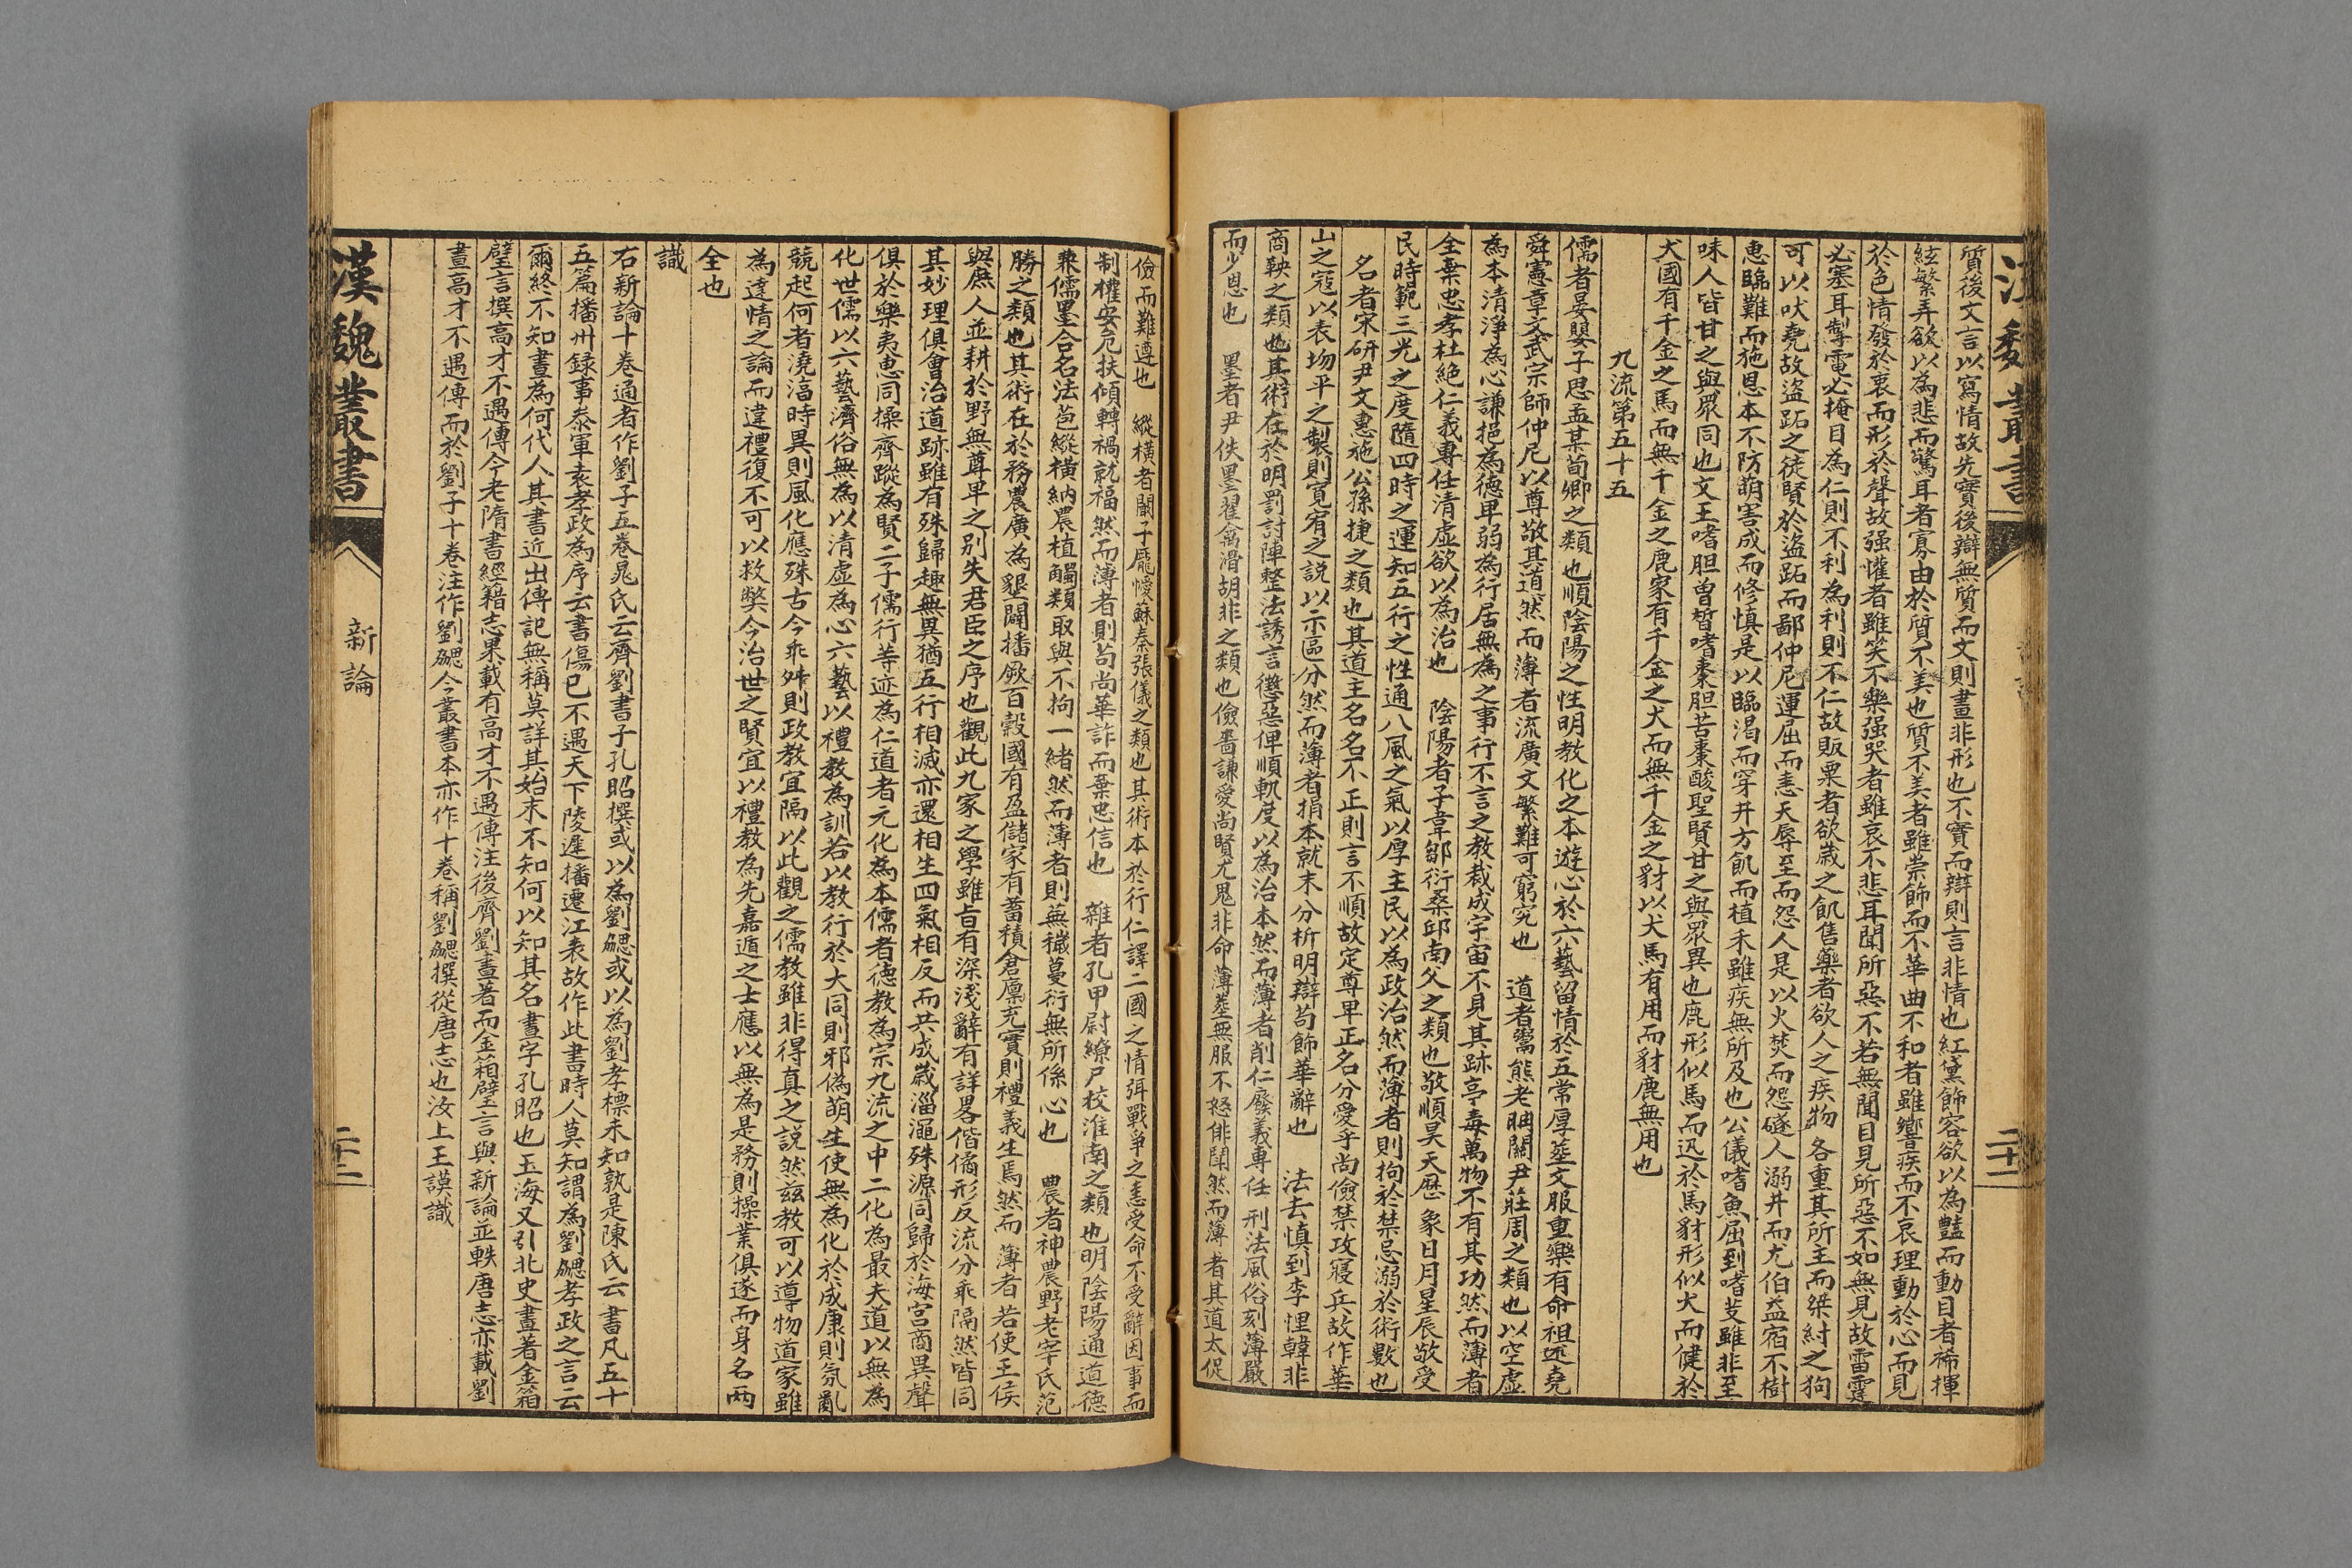 質後文言以寫情故先實後辯無質而文則畫非形也不實而辯則言非情也紅黛飾容欲以為豔而動目者稀揮
絃繁弄欲以為悲而驚耳者寡由於質不美也質不美者雖崇飾而不華曲不和者雖響疾而不哀理動於心而見
於色情發於衷而形於聲故强懽者雖笑不樂强哭者雖哀不悲耳聞所惡不若無聞目見所惡不如無見故雷霆
必塞耳掣電必掩目為仁則不利為利則不仁故販粟者欲歲之飢售藥者欲人之疾物各重其所主而桀紂之狗
可以吠堯故盜跖之徒賢於盜跖而鄙仲尼運屈而恚天辱至而怨人是以火焚而怨燧人溺井而尤伯益宿不樹
惠臨難而施恩本不防萌害成而修慎是以臨渴而穿井方飢而植禾雖疾無所及也公儀嗜魚屈到嗜芰雖非至
味人皆甘之與眾同也文王嗜胆曾晳嗜棗胆苦棗酸聖賢甘之與眾異也鹿形似馬而迅於馬豺形似犬而健於
犬國有千金之馬而無千金之鹿家有千金之犬而無千金之豺以犬馬有用而豺鹿無用也
九流第五十五
儒者晏嬰子思孟某荀卿之類也順陰陽之性明教化之本遊心於六藝留情於五常厚葬文服重樂有命祖述堯
舜憲章文武宗師仲尼以尊敬其道然而薄者流廣文繁難可窮究也　道者鬻熊老聃關尹莊周之類也以空虛
為本清淨為心謙挹為德卑弱為行居無為之事行不言之教裁成宇宙不見其跡亭毒萬物不有其功然而薄者
全棄忠孝杜絕仁義專任清虛欲以為治也　陰陽者子韋鄒衍桑邱南父之類也敬順昊天歷象日月星辰敬受
民時範三光之度隨四時之運知五行之性通八風之氣以厚主民以為政治然而薄者則拘於禁忌溺於術數也
名者宋研尹文惠施公孫捷之類也其道主名名不正則言不順故定尊卑正名分愛乎尚儉禁攻寢兵故作華
山之冠以表均平之製則寬宥之説以示區分然而薄者捐本就末分析明辯苟飾華辭也　法去慎到李悝韓非
商鞅之類也其術在於明罰討陣整法誘言懲惡俾順軌度以為治本然而薄者削仁廢義專任刑法風俗刻薄嚴
而少恩也　墨者尹佚墨翟禽滑胡非之類也儉嗇謙愛尚賢尤鬼非命薄葬無服不怒俳聞然而薄者其道太促
儉而難遵也　縱橫者闕子龐煖蘇秦張儀之類也其術本於行仁譯二國之情弭戰爭之恚受命不受辭因事而
制權安危扶傾轉禍就福然而薄者則苟尚華詐而棄忠信也　雜者孔甲尉繚尸校淮南之類也明陰陽通道德
兼儒墨合名法苞縱橫納農植觸類取與不拘一緒然而薄者則蕪穢蔓衍無所係心也　農者神農野老宰氏范
勝之類也其術在於務農廣為墾闢播厥百穀國有盈儲家有蓄積倉廩充實則禮義生焉然而薄者若使王侯
與庶人並耕於野無尊卑之别失君臣之序也觀此九家之學雖旨有深淺辭有詳畧偕僪形反流分乖隔然皆同
其妙理俱會治道跡雖有殊歸趣無異猶五行相滅亦還相生四氣相反而共成歲淄澠殊源同歸於海宮商異聲
俱於樂夷惠同操齊蹤為賢二子儒行等迹為仁道者元化為本儒者德教為宗九流之中二化為最夫道以無為
化世儒以六藝濟俗無為以清虛為心六藝以禮教為訓若以教行於大同則邪偽萌生使無為化於成康則氛亂
競起何者澆湻時異則風化應殊古今乖舛則政教宜隔以此觀之儒教雖非得真之説然兹教可以導物道家雖
為達情之論而違禮復不可以救獘今治世之賢宜以禮教為先嘉遁之士應以無為是務則操業俱遂而身名兩
全也
識
右新論十卷通者作劉子五卷晁氏云齊劉書子孔昭撰或以為劉勰或以為劉孝標未知孰是陳氏云書凡五十
五篇播州録事叅軍袁孝政為序云書傷巳不遇天下陵遲播遷江表故作此書時人莫知謂為劉勰孝政之言云
爾終不知書為何代人其書近出傳記無稱莫詳其始末不知何以知其名晝字孔昭也玉海又引北史晝著金箱
璧言撰高才不遇傳今老隋書經籍志果載有高才不遇傳注後齊劉晝著而金箱璧言與新論並軼唐志亦載劉
晝高才不遇傳而於劉子十卷注作劉勰今叢書本亦作十卷稱劉勰撰從唐志也汝上王謨識
漢魏叢書
新論
二十二